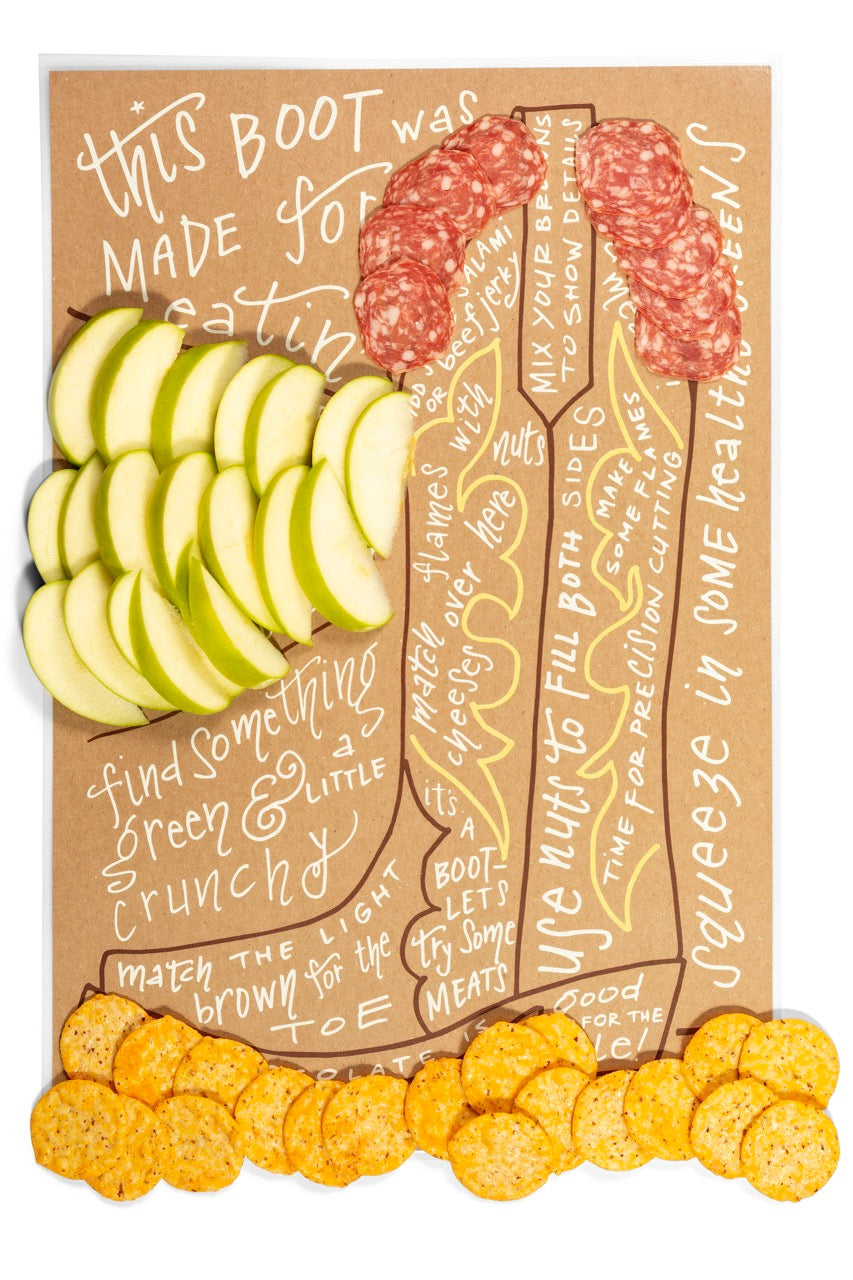 this BOOT was
MADE for
eatin
MIX YOUR BROWNS
TO SHOW DETAILS
SALAMI
OR beef jerky
match flames with nuts
cheeses over here
USE nuts to FILL BOTH SIDES
MAKE
SOME FLAMES
TIME FOR PRECISION CUTTING
squeeze in SOME healthy GREENS
find something
green & a LITTLE
crunchy
it's
A
BOOT-
LETS
try some
MEATS
match THE LIGHT
brown for the
TOE
good
FOR THE